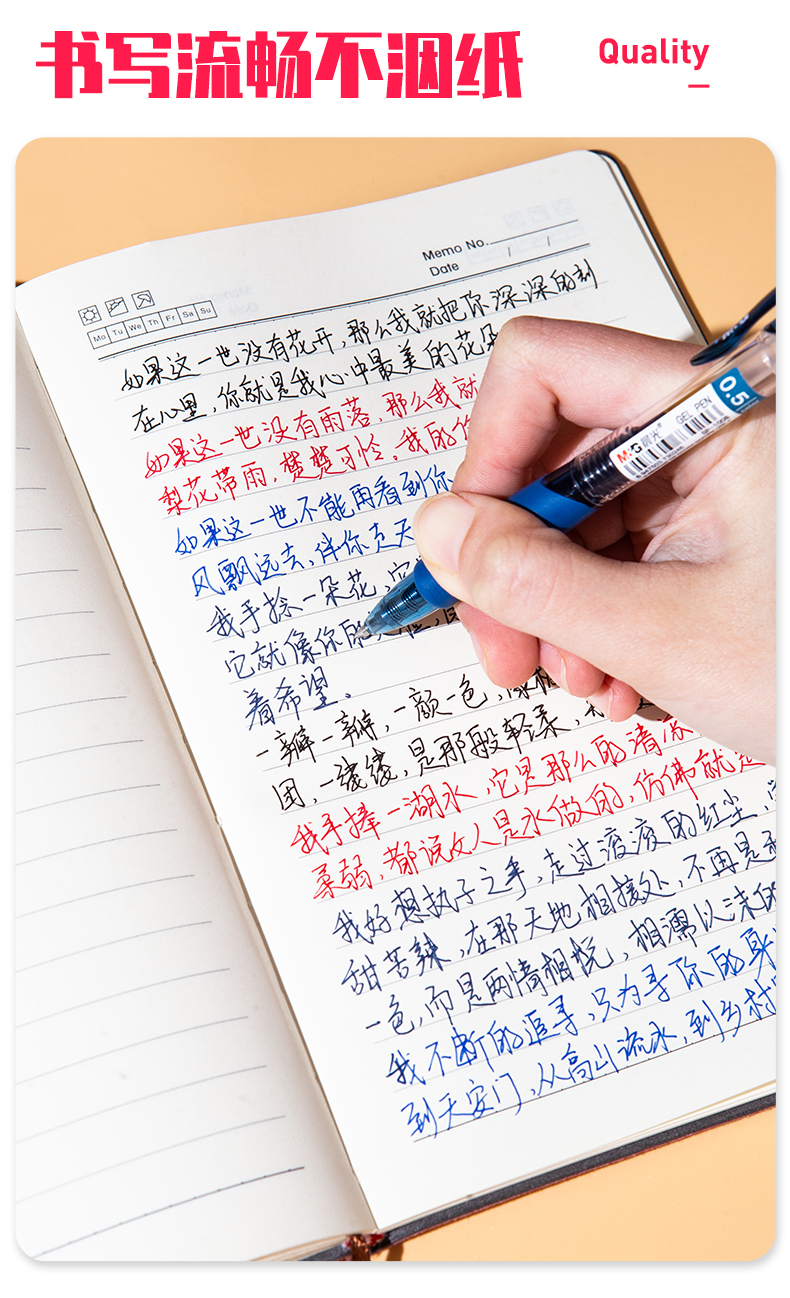 书写流畅不洇纸
Quality
Memo No.
Date / /
Mo Tu We Th Fr Sa Su
如果这一世没有花开，那么我就把你深深的刻
在心里，你就是我心中最美的花朵
如果这一世没有雨落，那么我就
梨花带雨，楚楚可怜，我的你
如果这一世不能再看到你
风飘远去，伴你走天
我手捻一朵花，它
它就像你的
着希望。
一瓣一瓣，一颜一色，像
团，一缕缕，是那般轻柔，
我手捧一湖水，它是那么的清凉
柔弱，都说女人是水做的，仿佛就是
我好想执子之手，走过滚滚的红尘，
甜苦辣，在那天地相接处，不再是
一色，而是两情相悦，相濡以沫的
我不断的追寻，只为寻你的身
到天安门，从高山流水，到乡村
M&G 晨光
GEL PEN
0.5